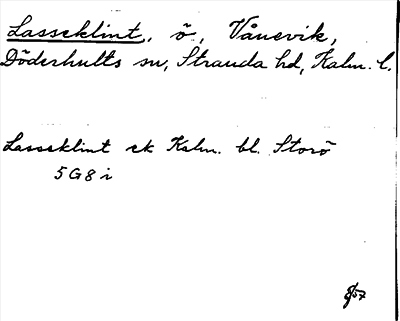 Lasseklint, ö, Vånevik,
Döderhults sn, Stranda hd, Kalm. l.
Lasseklint ek Kalm. bl. Storö
5G8i